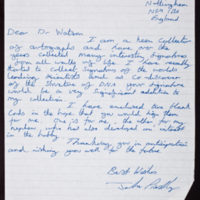 Nottingham
England
Dear Dr Watson
I am a keen collector
of autographs and have over the
years collected many interesting signatures
from all walks of life. I have recently
started to collect signatures of the worlds
leading scientists and as co-discover
of the structure of DNA your signature
would be a very significant addition to
my collection.
I have enclosed two blank
cards in the hope that you would sign them
for me. One is for me, the other for my
nephew who has also developed an interest
in the hobby
Thanking you in anticipation
and wishing you well for the future
Best Wishes
John